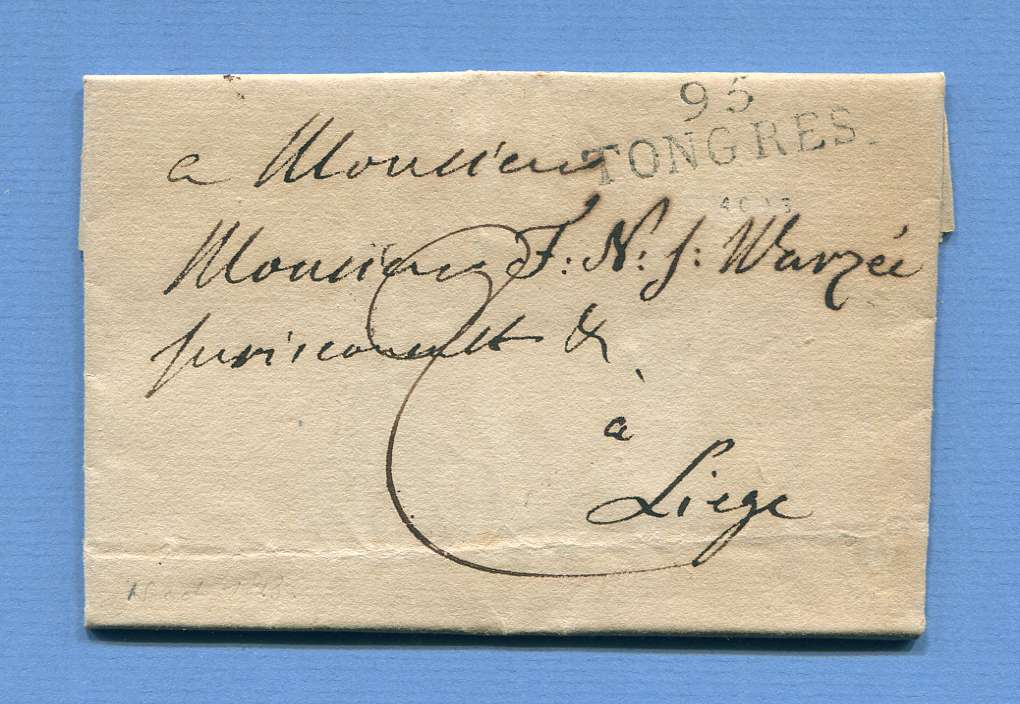 95
TONGRES.
a Monsieur
Monsieur F: N: J: Warzée
Jurisconsulte &
à
Liege